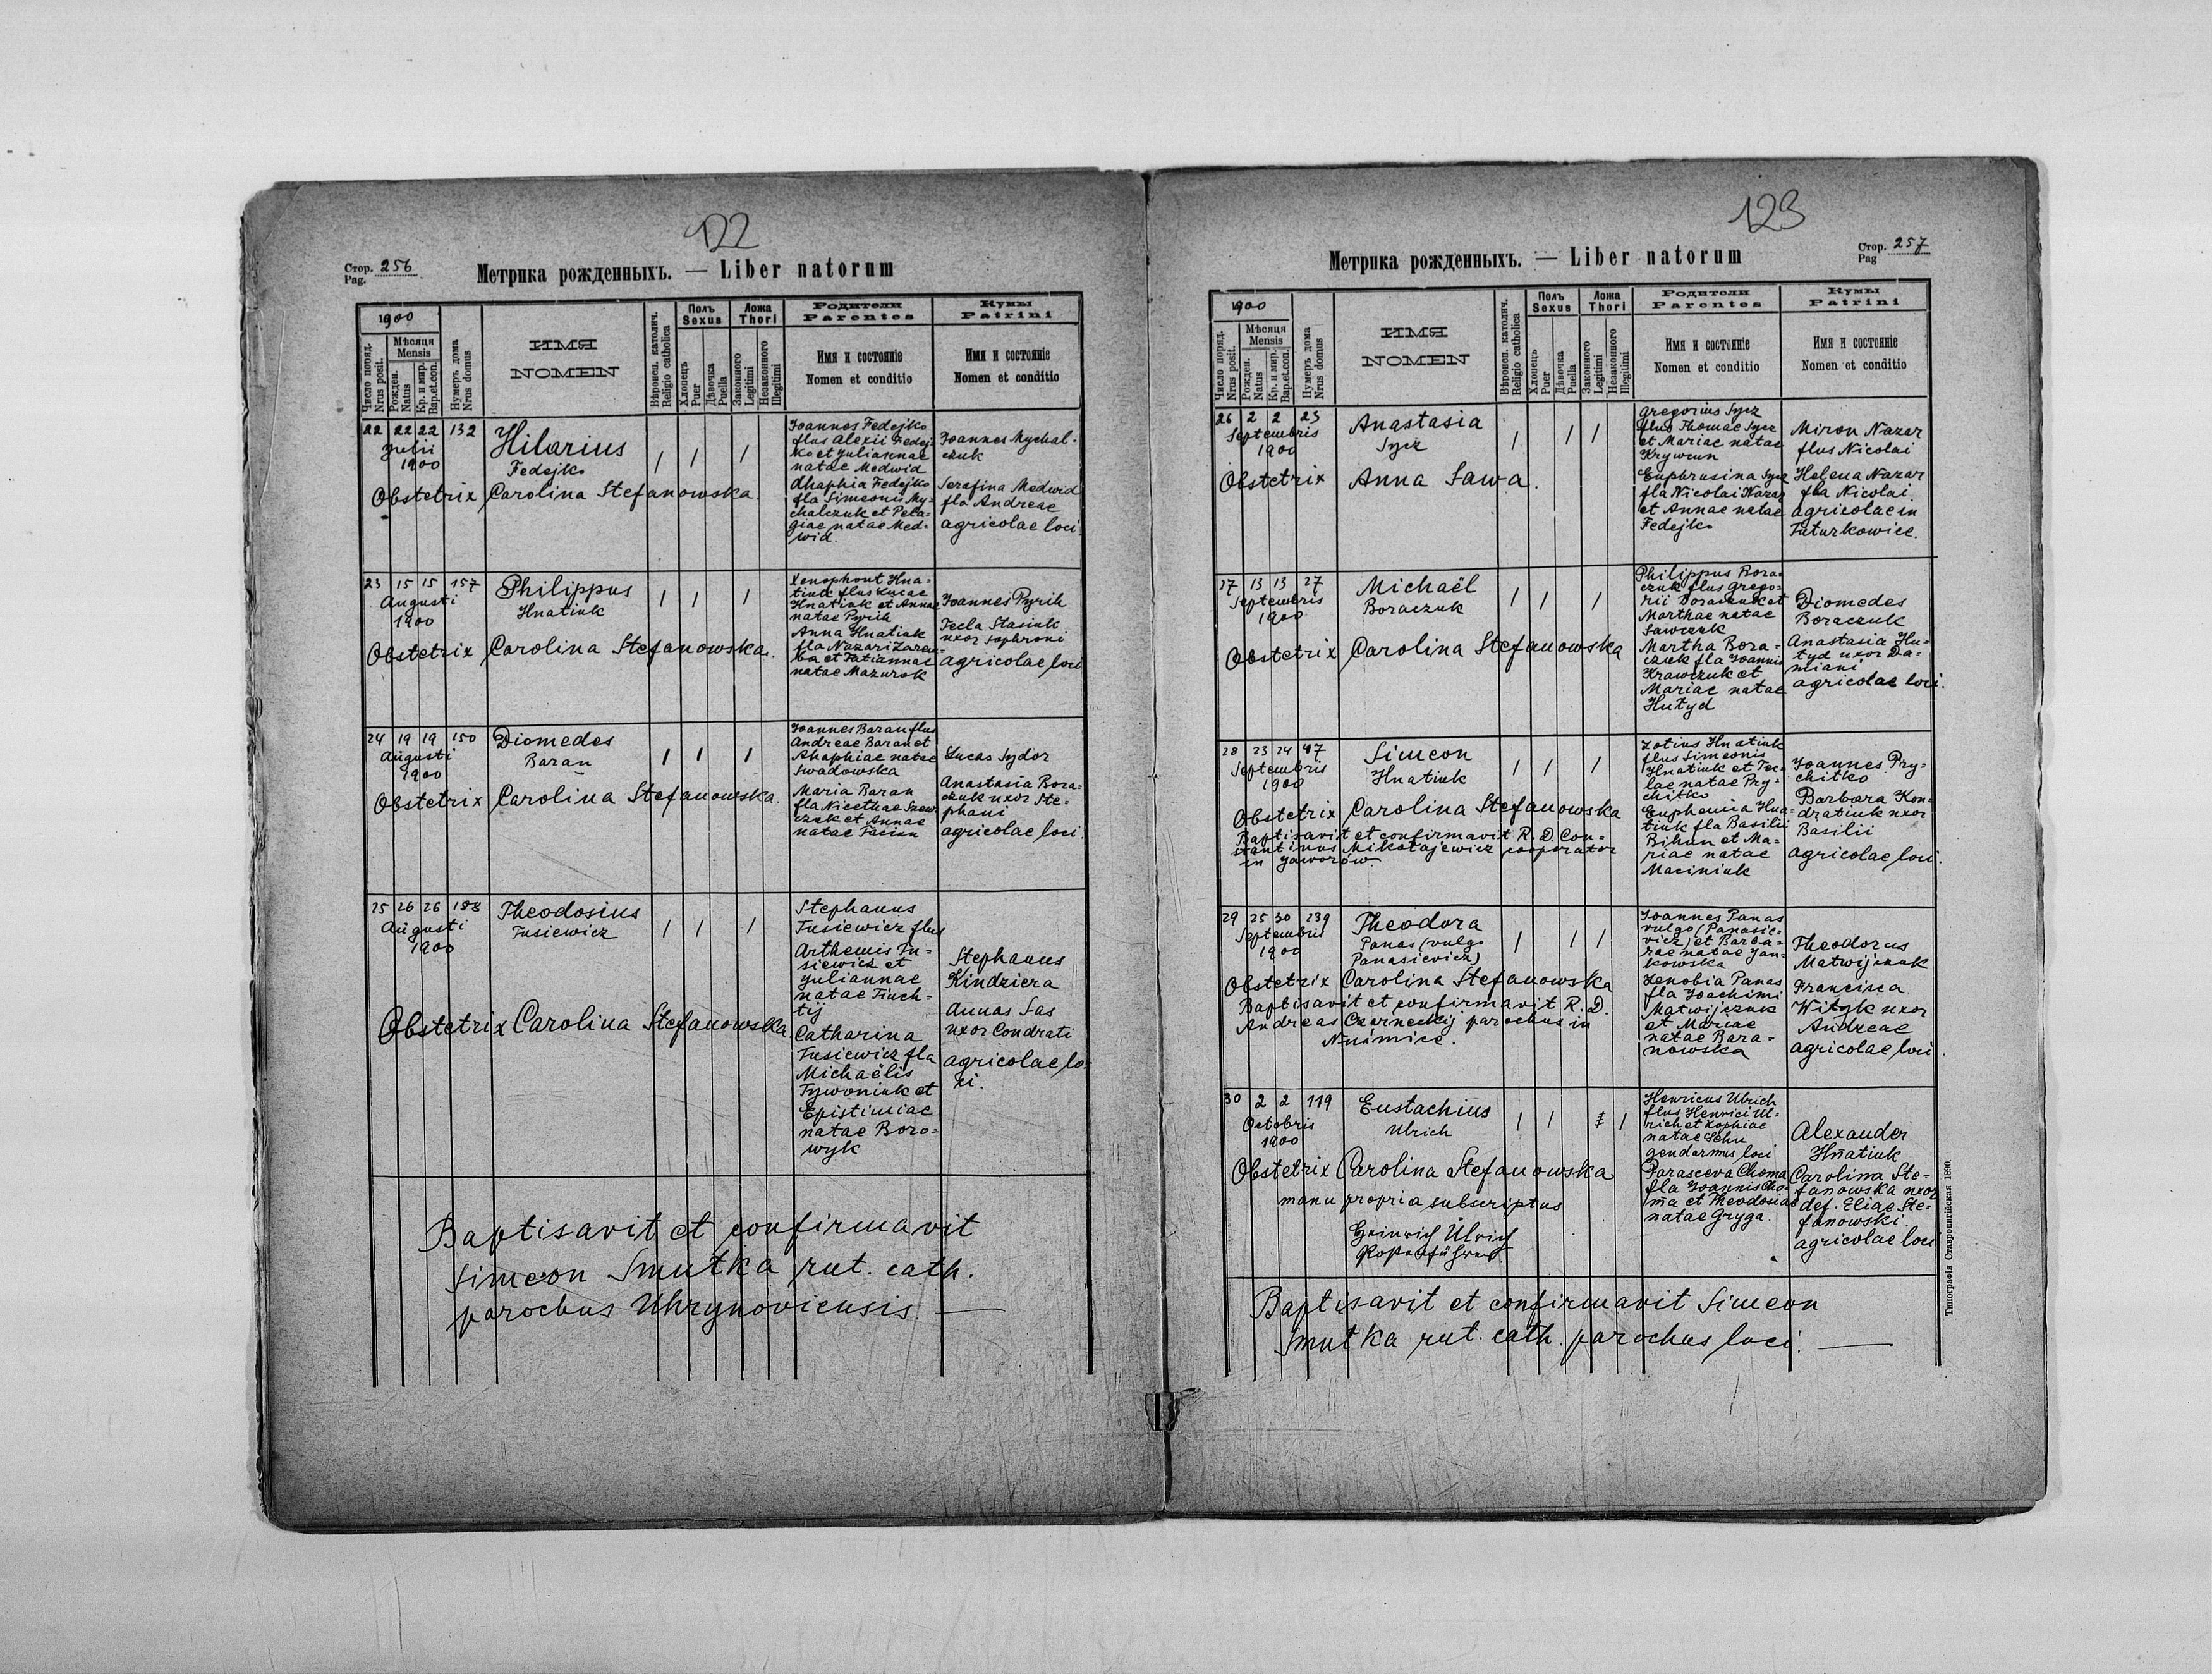 122
Стор. 256
Pag.
Метрика рожденныхъ. — Liber natorum
1900
Число поряд.
Nrus posit.
Мѣсяця
Mensis
Рожден.
Natus
Кр. и мир.
Bap.et.con.
Нумеръ дома
Nrus domus
ИМЯ
NOMEN
Вѣроисп. католич.
Religio catholica
Полъ
Sexus
Хлопецъ
Puer
Дѣвочка
Puella
Ложа
Thori
Законного
Legitimi
Незаконного
Illegitimi
Родители
Parentes
Имя и состоянiе
Nomen et conditio
Кумы
Patrini
Имя и состоянiе
Nomen et conditio
22 22 22 132
Julii
1900
Hilarius
Fedejko
Obstetrix Carolina Stefanowska.
Joannes Fedejko
flus Alexii Fedej-
ko et Juliannae
natae Medwid
Fedejko
fla Simeonis My-
chalczuk et Pela-
giae natae Med-
wid.
Joannes Mychal-
czuk
Serafina Medwid
fla Andreae
agricolae loci.
23 15 15 157
Augusti
1900
Philippus
Hnatiuk
Obstetrix Carolina Stefanowska.
Xenophont Hna-
tiuk flus Lucae
Hnatiuk et Annae
natae Pyrih
Anna Hnatiuk
fla Nazari
et Tatiannae
natae Mazurok
Joannes Pyrih
Tecla Stasiuk
uxor Sophroni
agricolae loci
24 19 19 150
Augusti
1900
Diomedes
Baran
Obstetrix Carolina Stefanowska.
Joannes Baran flus
Andreae Baran et
Ahaphiae natae
Swadowska
Maria Baran
fla Nicethae Szew-
czuk et Annae
natae
Lucas Sydor
Anastasia Bora-
czuk uxor Ste-
phani
agricolae loci.
25 26 26 188
Augusti
1900
Theodosius
Tusiewicz
Obstetrix Carolina Stefanowska
Stephanus
Tusiewicz flus
Arthemis Tu-
siewicz et
Juliannae
natae
Catharina
Tusiewicz fla
Michaëlis
Tywoniuk et
Epistimiae
natae Boro-
wyk
Stephanus
Kindziera
Annas Sas
uxor Condrati
agricolae lo-
ci.
Baptisavit et confirmavit
Simeon Smutka rut. cath.
parochus Uhrynoviensis. —
123
Стор. 257
Pag
Метрика рожденныхъ. — Liber natorum
1900
Число поряд.
Nrus posit.
Мѣсяця
Mensis
Рожден.
Natus
Кр. и мир.
Bap.et.con.
Нумеръ дома
Nrus domus
ИМЯ
NOMEN
Вѣроисп. католич.
Religio catholica
Полъ
Sexus
Хлопецъ
Puer
Дѣвочка
Puella
Ложа
Thori
Законного
Legitimi
Незаконного
Illegitimi
Родители
Parentes
Имя и состоянiе
Nomen et conditio
Кумы
Patrini
Имя и состоянiе
Nomen et conditio
26 2 2 23
Septembris
1900
Anastasia
Sycz
Obstetrix Anna Sawa.
Gregorius Sycz
flus Thomae Sycz
et Mariae natae
Krywcun
Euphrusina Sycz
fla Nicolai Nazar
et Annae natae
Fedejko
Miron Nazar
flus Nicolai
Helena Nazar
fla Nicolai
agricolae in
Tuturkowice.
27 13 13 27
Septembris
1900
Michaël
Boraczuk
Obstetrix Carolina Stefanowska
Philippus Bora-
czuk flus Grego-
rii Boraczuk et
Marthae natae
Sawczek
Martha Bora-
czuk fla Joannis
Krawczuk et
Mariae natae
Hutyd
Diomedes
Boraczuk
Anastasia Hu-
tyd uxor Da-
miani
agricolae loci.
28 23 24 47
Septembris
1900
Simeon
Hnatiuk
Obstetrix Carolina Stefanowska
Baptisavit et confirmavit R. D. Con-
stantinus Mikołajewicz cooperator
in Jaworów.
Zotius Hnatiuk
flus Simeonis
Hnatiuk et Tec-
lae natae Pry-
chitko
Euphemia Hna-
tiuk fla Basilii
Bihun et Ma-
riae natae
Maciniuk
Joannes Pry-
chitko
Barbara Kon-
dratiuk uxor
Basilii
agricolae loci.
29 25 30 239
Septembris
1900
Theodora
Panas (vulgo
Panasievicz)
Obstetrix Carolina Stefanowska
Baptisavit et confirmavit R. D.
Andreas Czerneckij parochus in
Nuśmice.
Joannes Panas
vulgo (Panasie-
vicz) et Barba-
rae natae Jan-
kowska
Zenobia Panas
fla Joachimi
Matwijczuk
et Mariae
natae Bara-
nowska
Theodorus
Matwijczuk
Francisca
Wityk uxor
Andreae
agricolae loci.
30 2 2 119
Octobris
1900
Eustachius
Ulrich
Obstetrix Carolina Stefanowska
manu propria subscriptus
Heinrich Ulrich
Postenführer
Henricus Ulrich
flus Henrici Ul-
rich et Sophiae
natae Sehn
gendarmus loci
Parasceva Choma
fla Joannis Cho-
ma et Theodosiae
natae Gryga.
Alexander
Hnatiuk
Carolina Ste-
fanowska uxor
def. Eliae Ste-
fanowski.
agricolae loci
Baptisavit et confirmavit Simeon
Smutka rut. cath. parochus loci. —
Типографія Ставропигійская 1890.